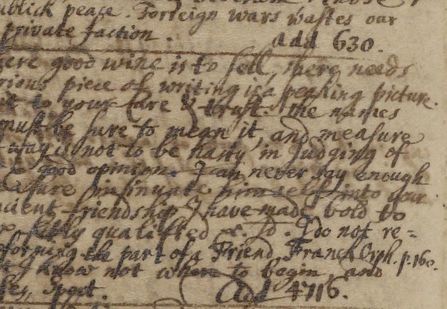 ublick peace. Forreign wars wastes our
private faction. add 630.
ere good wine is to sell, there needs
rious piece of writing is a speaking picture
it to your care & trust. the names
must be sure to mean it, and measure
way is not to be hasty in judging of
good opinion. I can never say enough
insinuate him self into our
cient friendship I have made bold to
qualified &c. Id. I do not re=
forming the part of a Friend, Franck Orph. p. 160.
know not where to begin, and
Spect. add 4716.